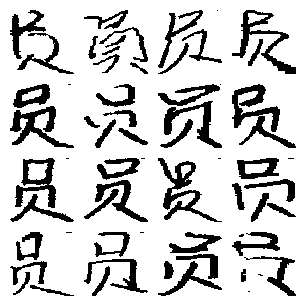 员员员员
员员员员
员员员员
员员员员